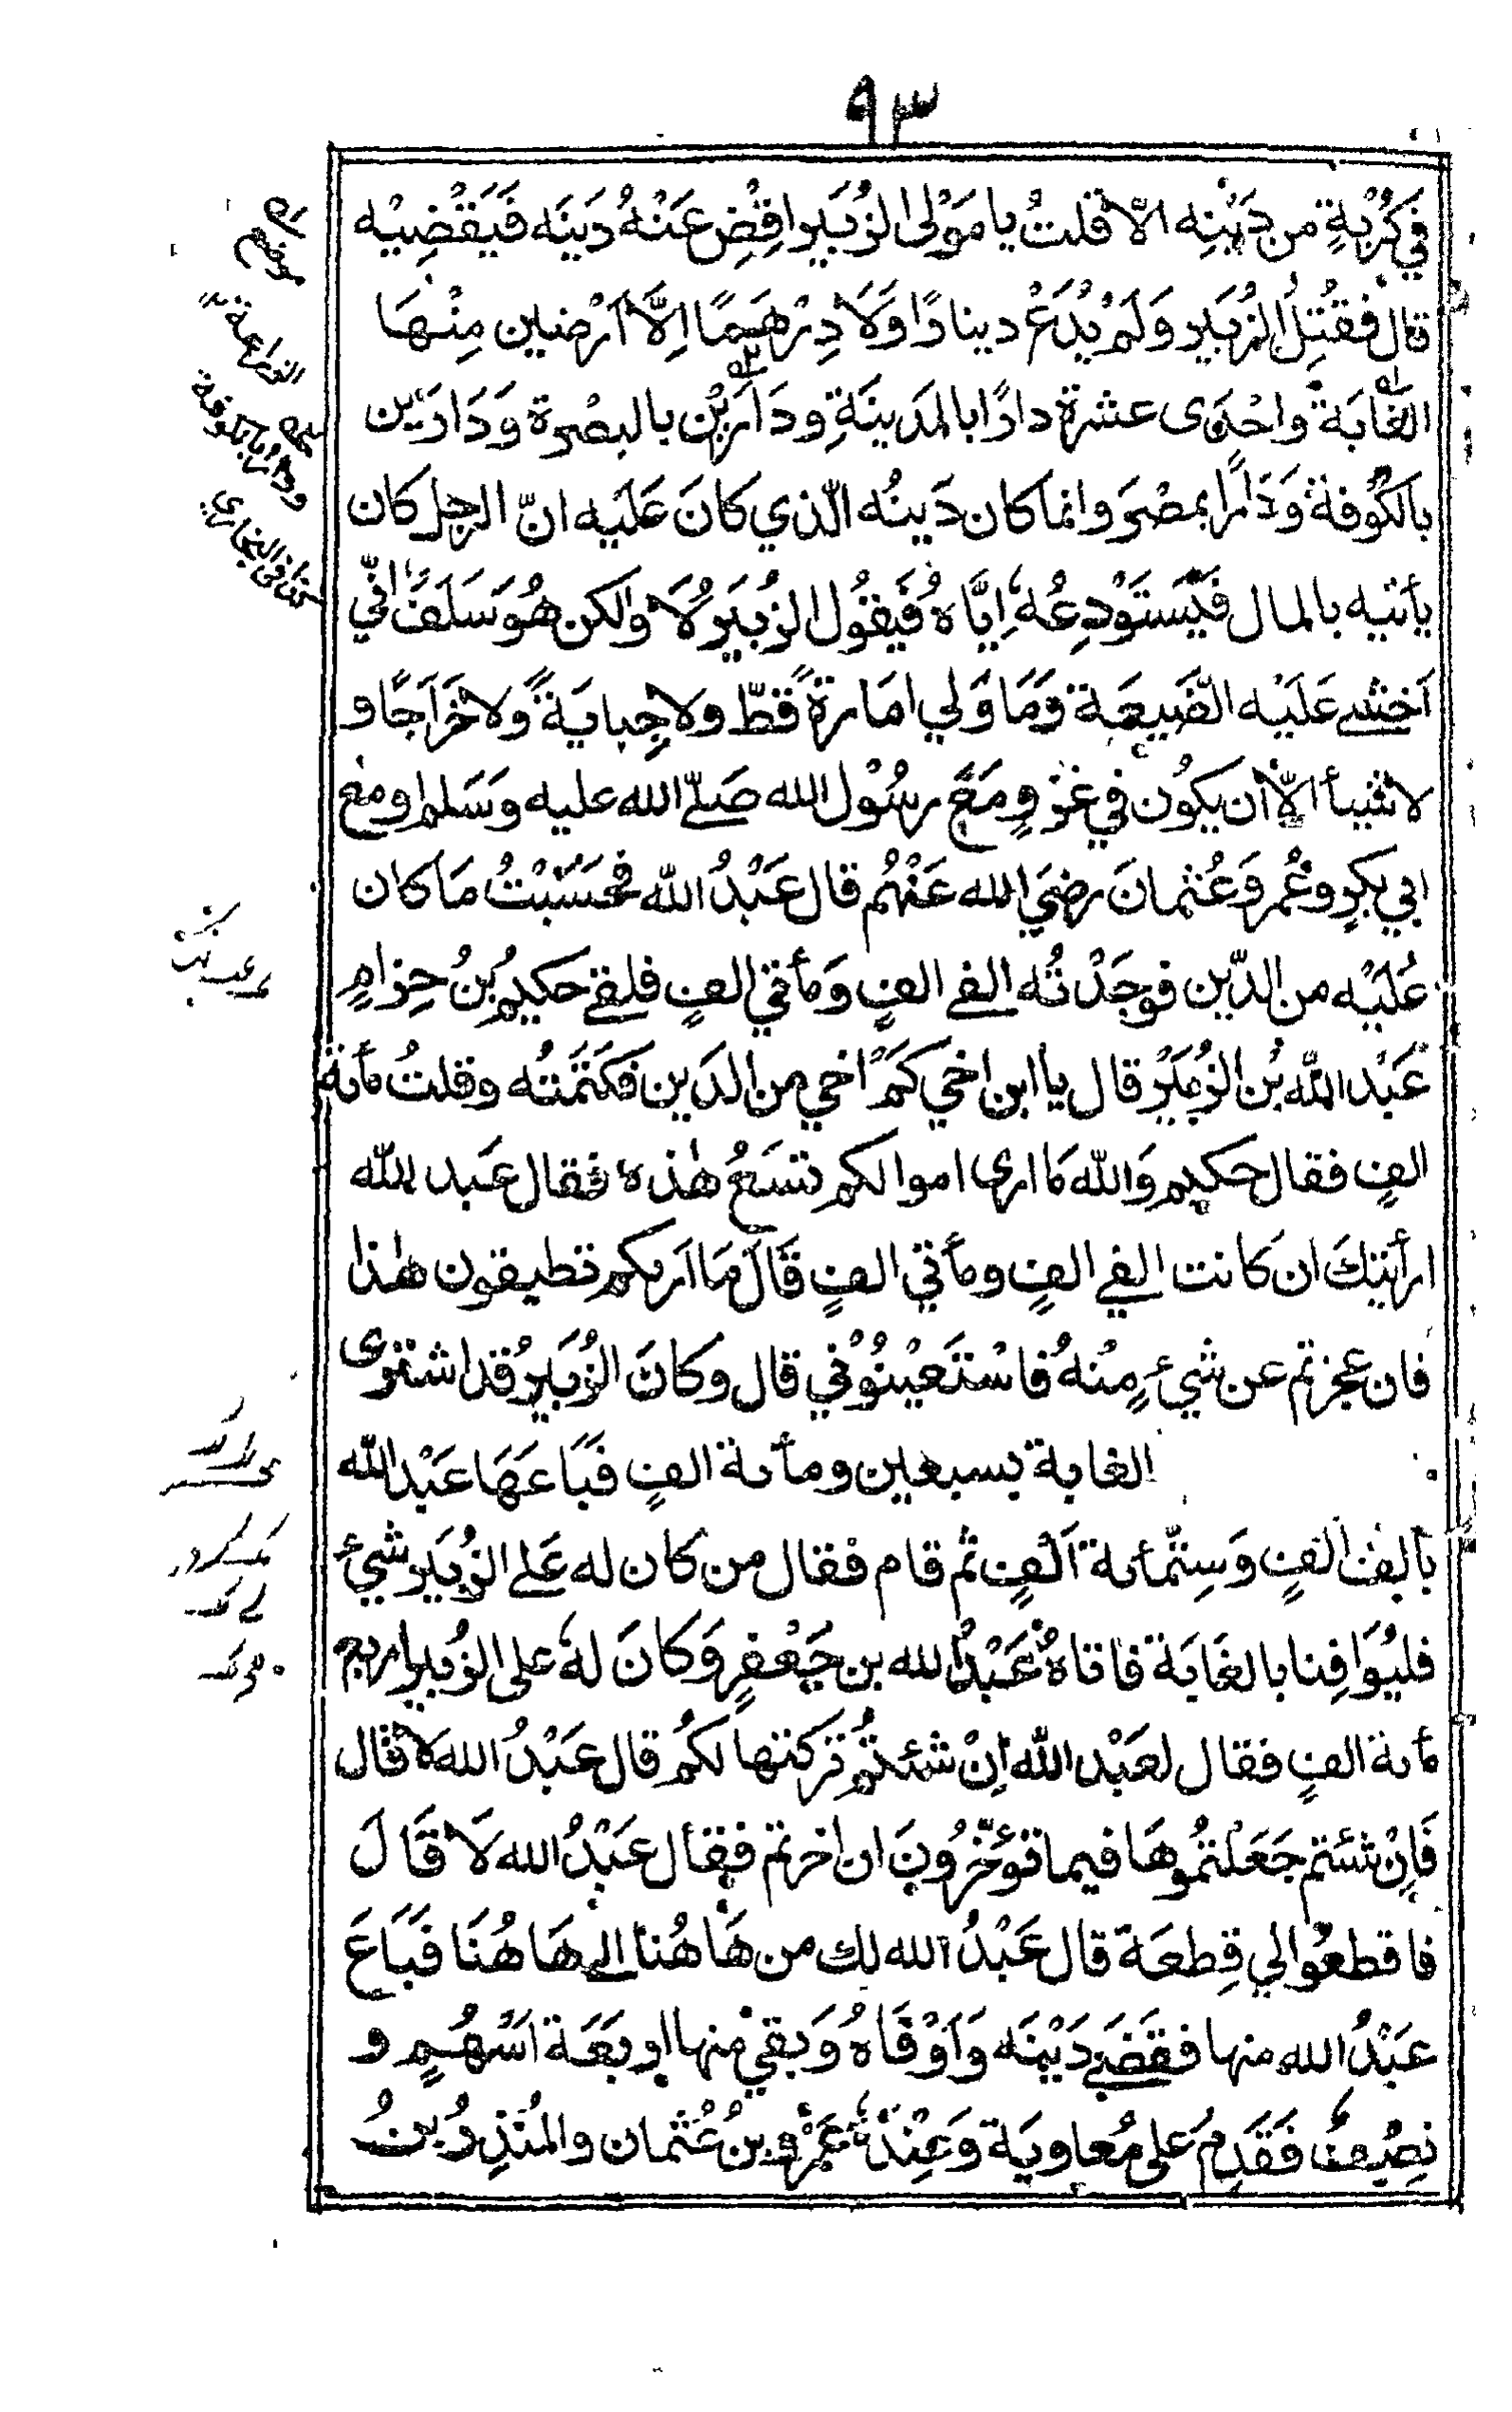 ٩٣
في كُرْبةٍ من دَيْنِه الّا قلتُ يا مَوْلى الزُبَير اقْضِ عَنْهُ دَينَه فَيَقْضِيْه
قال فقُتِلُ الزُبَير وَلَمْ يَدَعْ دينارًا وَلَا دِرْهَمًا اِلَّا اَرْضين مِنْهَا
الغَابَة واحْدَى عشرة دارًا بالمَدينَةِ ودَارَيْن بالبصْرة وَدَارَيْن
بالكُوفة وَدَارًا بمصْرَ وانما كان دَينُه الّذي كانَ عَلَيه انّ الرجل كان
يأتيه بالمال فَيَستَوْدِعُهُ اِيَّاه فَيَقُول الزبَيرُ لَا ولكن هُوَ سَلَفٌ انّي
اَخشے عَلَيْه الضَّيعَة وَمَا وَلي امَارةً قطّ ولا جِبايَةً ولا خَرَاجًا و
لا شيأ الّا أن يكوُن في غزْوٍ مَعَ رسُوْل الله صَلّے الله عليه وَسَلم اومع
ابي بكرٍ وعُمر وَعُثمانَ رضيَ الله عَنْهُم قال عَبْدُ الله فحَسَبْتُ مَا كان
عَلَيْه من الدّين فوجَدْتُه الفے الفٍ وَمأتي الفٍ فلقے حكيمُ بنُ حِزامٍ
عَبْد الله بْن الزُبَيْرْ قال يا ابن اخي كَمْ اخي من الدَين فكَتَمَتُه وقلتُ مأىة
الفٍ فقال حكيم وَالله ما ارى اموالكم تسَعُ هٰذه فقال عَبد الله
ارأيتكَ ان كانت الفے الفٍ ومأتي الفٍ قالَ مَا اَرىكم تطيقون هٰذا
فان عجزتم عن شيءٍ مِنْهُ فاسْتَعيْنُوْني قال وكانَ الزُبَيرُ قد اشترى
الغابة بسبعين ومأىة الفٍ فبَاعَهَا عَبْد الله
بألف الفٍ وَسِتّمأىة اَلْفٍ ثم قام فقال من كان له عَلى الزُبَير شيءٌ
فليُوَافِنا بالغَابَة فاتاهُ عَبْدُ الله بن جَعْفرٍ وَكانَ لهُ على الزُبير اربع
مأىة الفٍ فقال لعَبْد الله اِنْ شئتُم تركتها لكُم قال عَبْدُ الله لا قال
فَاِنْ شئتم جَعَلتُموهَا فيما تؤخّرُونَ ان اخرتم فقال عَبْدُ الله لَا قَالَ
فاقطعُوا لي قِطعَة قال عَبْدُ الله لك من هَاهُنا الے هَاهُنَا فَبَاعَ
عَبْدُ الله منها فقَضَے دَيْنَه وَاَوْفَاهُ وَبقيَ منها اربَعَة اَسْهُمٍ و
نِصْف فَقَدِمَ على مُعاويَة وَعِنْدَهُ عَمْرُو بنُ عُثمان والمُنذِرُ بنُ